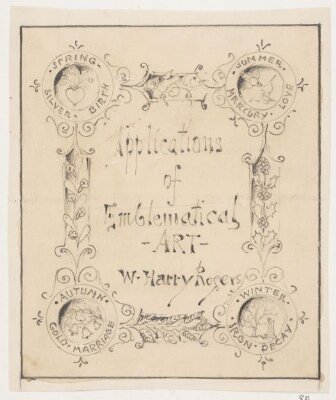 SPRING · BIRTH · SILVER
SUMMER · LOVE · MERCURY
Applications
of
Emblematical
-ART-
W. Harry Rogers
AUTUMN · MARRIAGE · GOLD
WINTER · DECAY · IRON
80